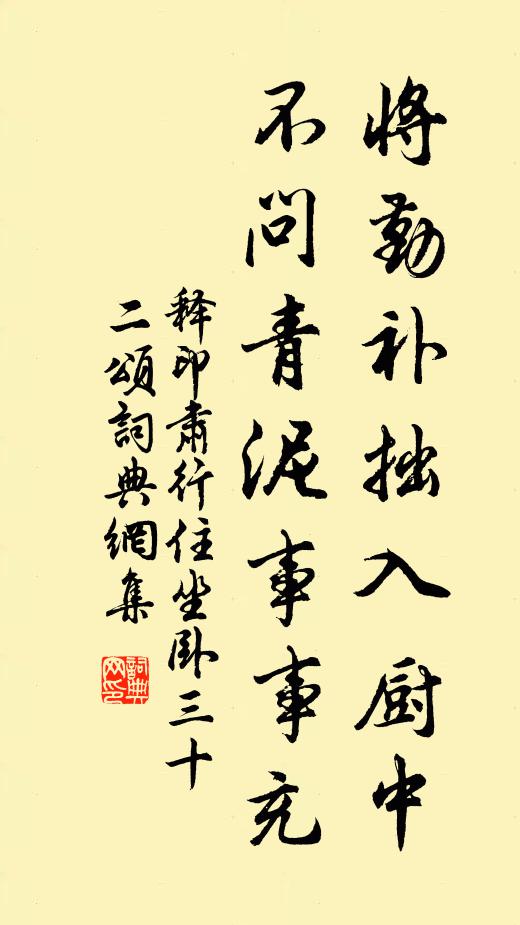 将勤补拙入厨中
不问青泥事事充
释印肃行住坐卧三十
二頌詞典網集
詞典网印